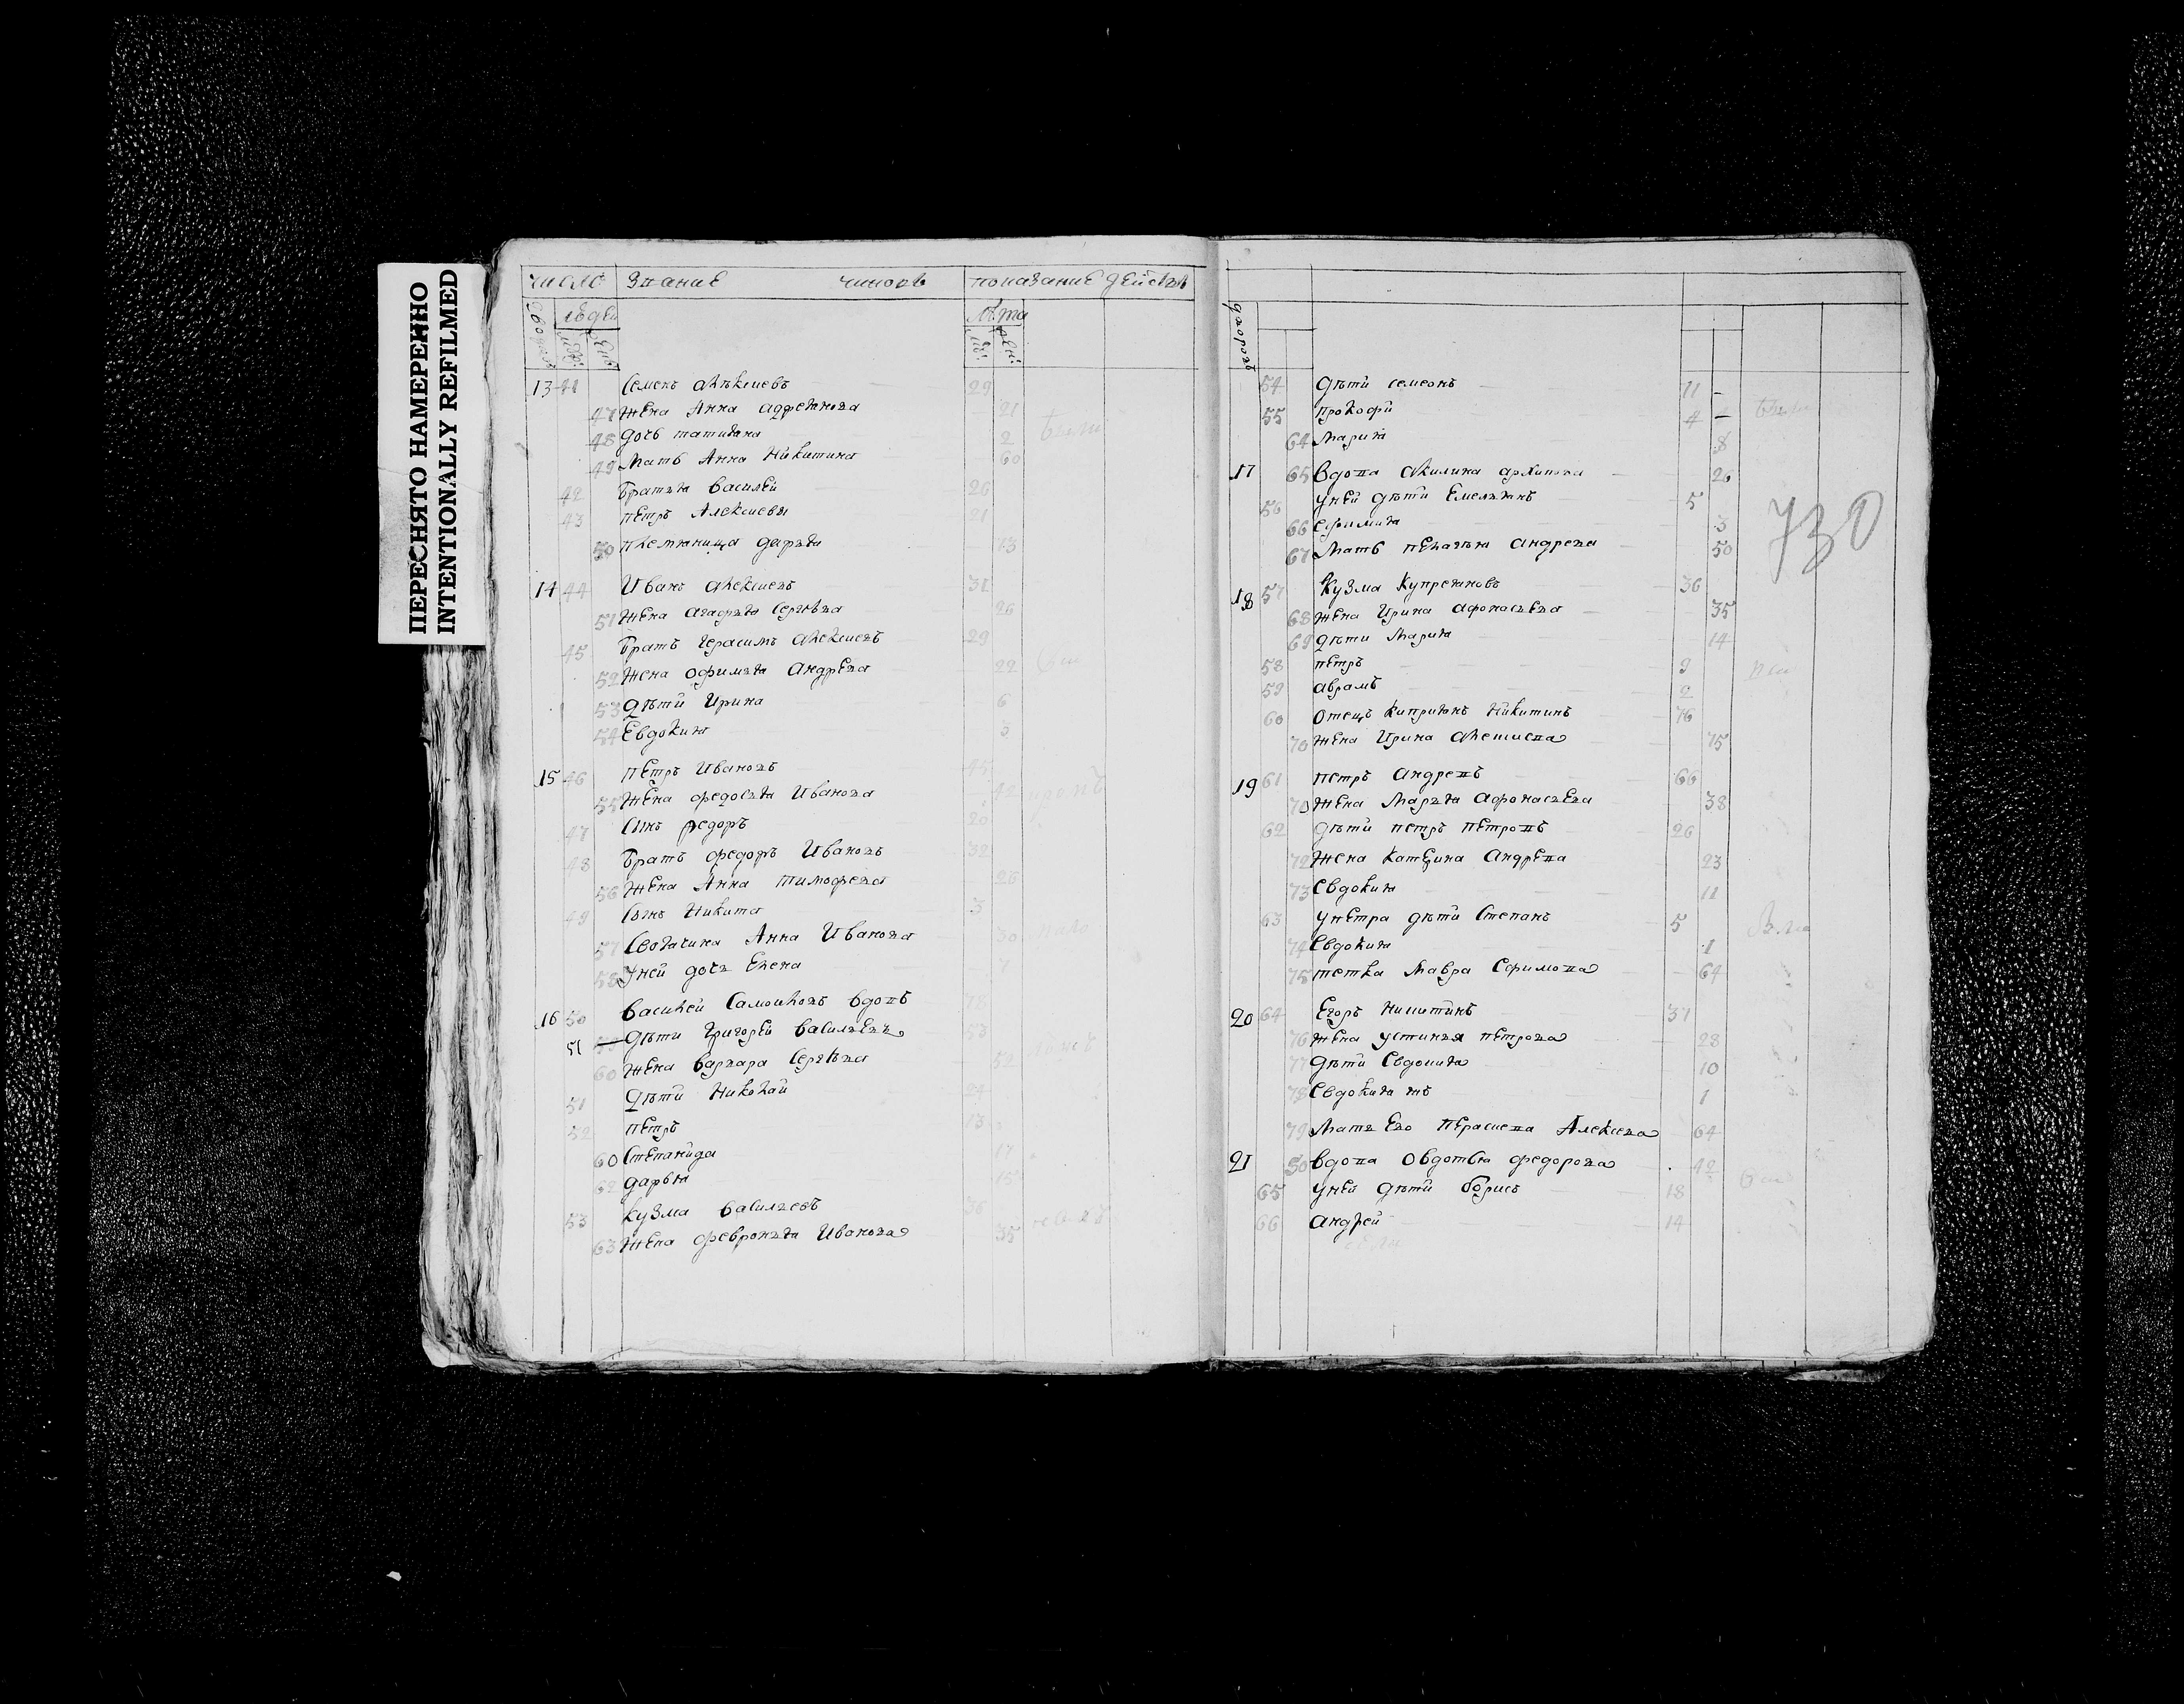 ПЕРЕСНЯТО НАМЕРЕННО
INTENTIONALLY REFILMED
число Звание чиновъ показание действъ
людей лѣта
13 41 Семенъ алѣксиевъ 29
47 жена Анна андреянова 21
48 дочь татияна 2
49 Мать Анна Никитина 60
42 Братья василей 26
43 петръ Алексиевы 21
50 племяница дарья 13
14 44 Иванъ алексиевъ 31
51 жена агафья Сергѣва 26
45 Братъ герасимъ алексиевъ 29
52 жена офимья андрева 22
53 дѣти Ирина 6
54 Евдокия 3
15 46 петръ Ивановъ 45
55 жена федосья Иванова 42
47 Сынъ федоръ 20
48 Братъ федоръ Ивановъ 32
56 жена Анна тимофева 26
49 Сынъ Никита 3
57 Своячина Анна Иванова 30
58 Уней дочь Елена 7
16 50 василей Самойловъ вдовъ 78
51 дѣти григорей василъевъ 53
60 жена варвара Сергѣва 52
51 дѣти Николай 24
52 петръ 13
60 Степанида 17
62 дарья 15
53 кузма василъевъ 36
63 жена февронъя Иванова 35
дворовъ
54 дѣти семеонъ 11 -
55 прокофи 4 -
64 Мария 8
17 65 вдова акилина архипова 26
56 уней дѣти Емельянъ 5
66 ефимия 3
67 Мать пелагъя андрева 50
730
18 57 кузма купреяновъ 36
68 жена Ирина афонасъева 35
69 дѣти Мария 14
58 петръ 9
59 аврамъ 2
60 отецъ киприянъ Никитинъ 76
70 жена Ирина 75
19 61 петръ андревъ 66
70 жена Маръя афонасъева 38
62 дѣти петръ петровъ 26
72 жена катерина андрева 23
73 Евдокия 11
63 упетра дѣти Степанъ 5
74 Евдокия 1
75 тетка Мавра Ефимова 64
20 64 Егоръ Никитинъ 37
76 жена устинъя петрова 28
77 дѣти Евдокия 10
78 Евдокия жъ 1
79 Мать Его Алексева 64
21 50 вдова овдотья федорова 42
65 уней дѣти борисъ 18
66 андрей 14